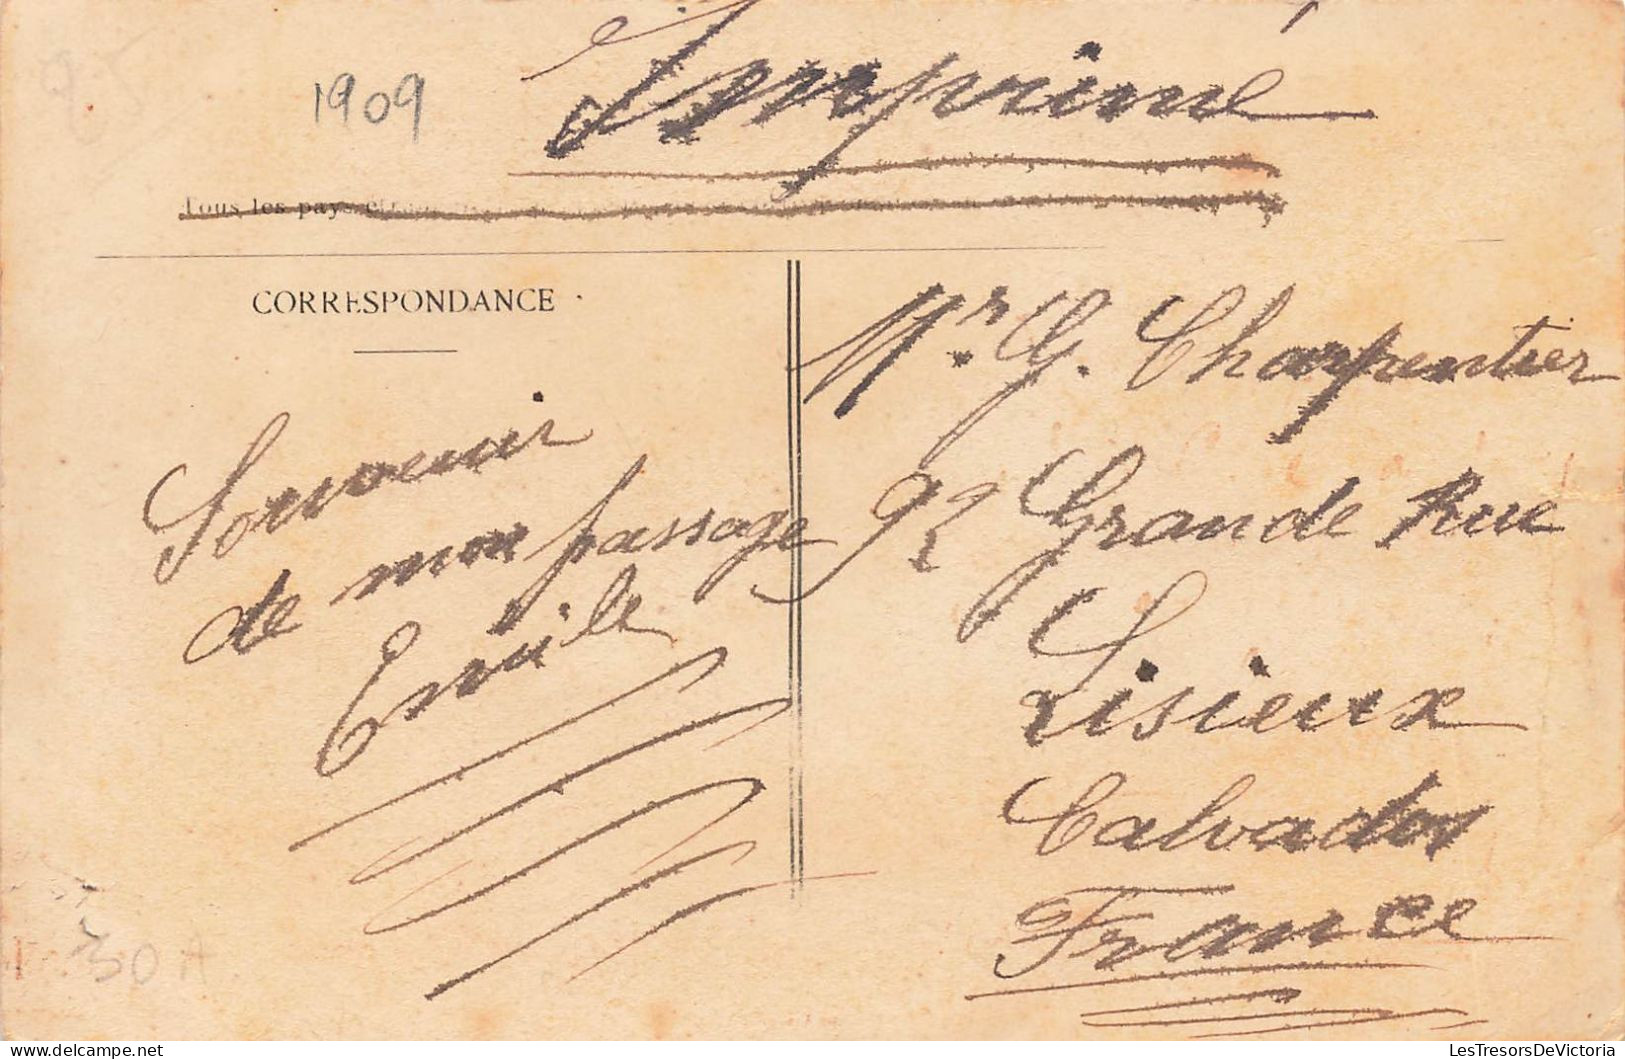 Imprimé
1909
Tous les pays
CORRESPONDANCE
Souvenir
de mon passage
Emile
Mr. G. Charpentier
92 Grande Rue
Lisieux
Calvados
France
30 A
LesTresorsDeVictoria